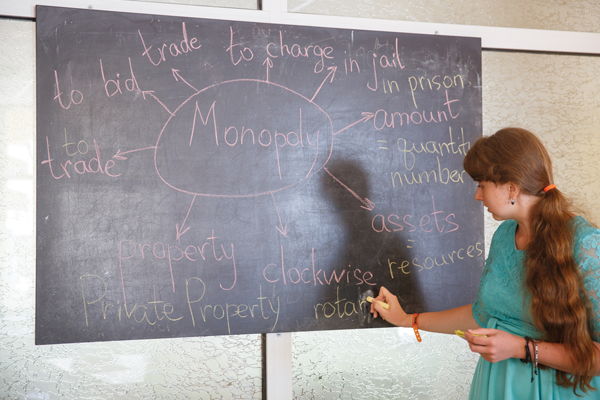 trade
to charge
in jail
to bid
in prison
Monopoly
amount
to trade
= quantity
number
assets
=
property
clockwise
resources
Private Property